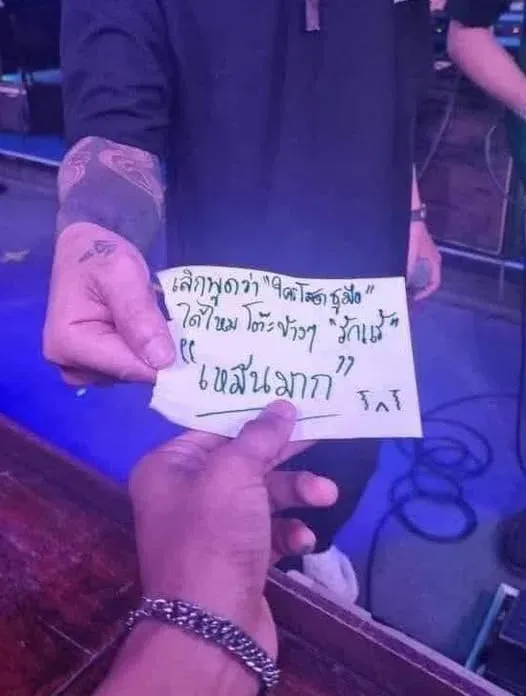 เลิกพูดว่า "ใครโสด ชูมือ"
ได้ไหม โต๊ะข้างๆ "รักแร้"
"เหม็นมาก"
 โ^โ